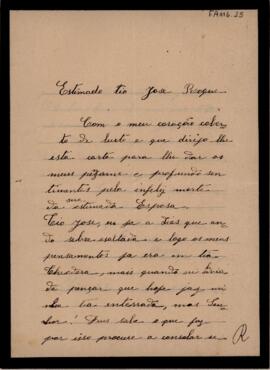 FAMG.25
Estimado tio Jose Roque
Com o meu coração cober-
to de lucto e que dirijo lhe
esta carta para lhe dar os
meus pêzames e profundo sen-
timentos pela infeliz morte
da sua estimada Esposa.
Tio Jose, eu ja a dias que an-
do sobre e logo os meus
pensamentos ja era em tia
mais quando eu
de pensar que hoje faz mi-
nha tia enterrada, mas Sen-
hor! Deus sabe o que faz
por isso procure a consolar se
R